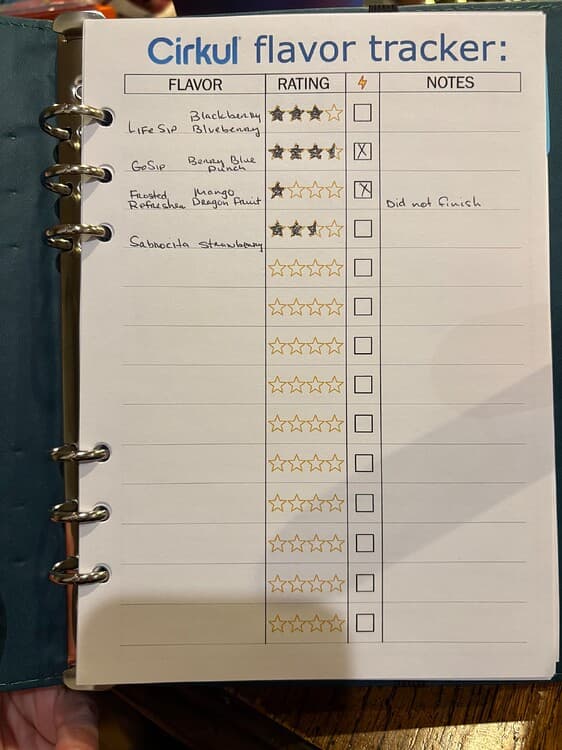 Cirkul flavor tracker:
FLAVOR RATING NOTES
Blackberry
LIFeSip Blueberry
GoSip Berry Blue
Punch
Frosted Mango
Refresher Dragon Fruit Did not finish
Strawberry